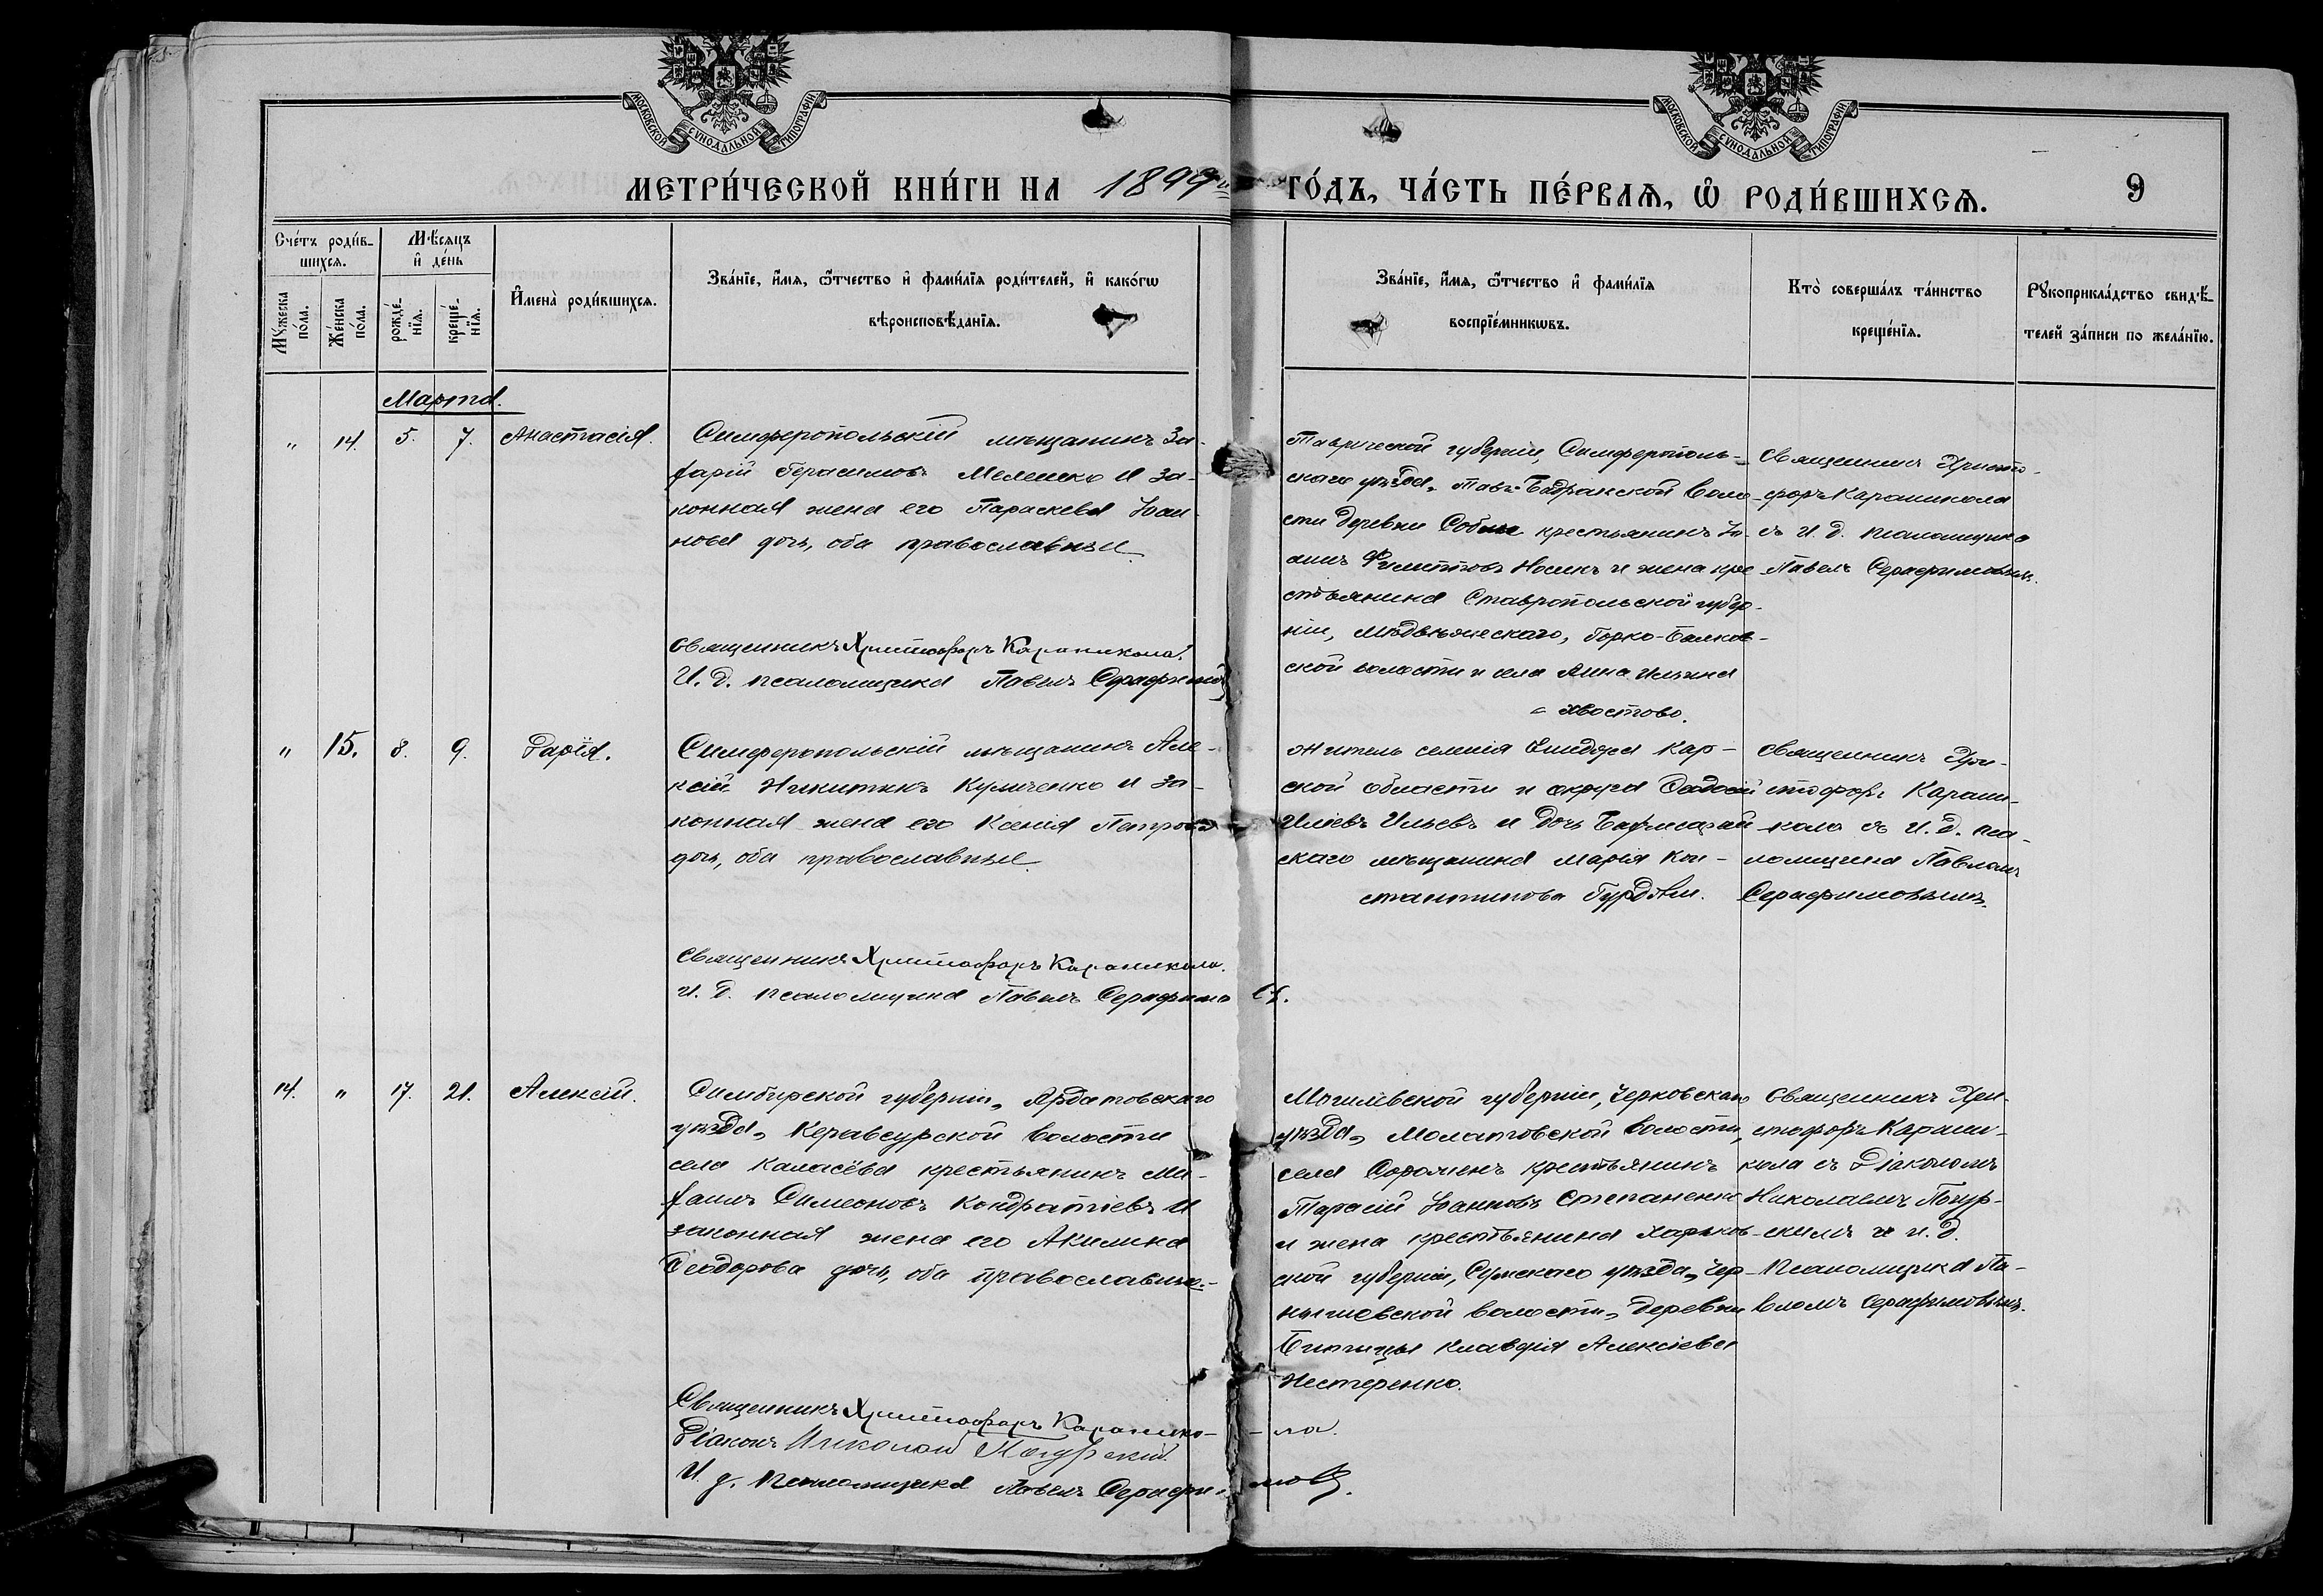 МОСКОВСКОЙ СѴНОДАЛЬНОЙ ТИПОГРАФІИ
МОСКОВСКОЙ СѴНОДАЛЬНОЙ ТИПОГРАФІИ
МЕТРИ́ЧЕСКОЙ КНИ́ГИ НА 1899й
ГО́ДЪ, ЧА́СТЬ ПЕ́РВАѦ, Ѡ РОДИ́ВШИХСѦ.
9
Сче́тъ роди́в-
шихсѧ.
Мꙋ́жеска
по́ла.
Же́нска
по́ла.
Мѣ́сѧцъ
и҆ де́нь
рожде́-
нїѧ.
креще́-
нїѧ.
И҆мена̀ роди́вшихсѧ.
Зва́нїе, и҆́мѧ, ѻ҆́тчество и҆ фами́лїѧ роди́телей, и҆ како́гѡ
вѣроисповѣ́данїѧ.
Зва́нїе, и҆́мѧ, ѻ҆́тчество и҆ фами́лїѧ
воспрїе́мникѡвъ.
Кто̀ соверша́лъ та́инство
креще́нїѧ.
Рꙋкоприкла́дство свидѣ́-
телей за́писи по жела́нїю.
Марта.
„ 14. 5. 7. Анастасія.
Симферопольскій мѣщанинъ За-
харій Герасимовъ Мелешко и за-
конная жена его Параскева Іоан-
нова дочь, оба православные
Священникъ Христофоръ Караникола.
И. д. псаломщика Павелъ Серафимовъ
Таврической губерніи, Симферополь-
скаго уѣзда, Тавъ-Бадракской воло-
сти деревни крестьянинъ Іо-
аннъ Филипповъ Носикъ и жена кре-
стьянина Ставропольской губер-
ніи, Медвѣжескаго, Горко-Балков-
ской волости и села Анна Ильина
Хвостово.
Священникъ Христо-
форъ Караникола
съ И. д. псаломщика
Павелъ Серафимовымъ.
„ 15. 8. 9. Дарія.
Симферопольскій мѣщанинъ Але-
ксій Никитинъ Куличенко и за-
конная жена его Ксенія Петрова
дочь, оба православные.
Священникъ Христофоръ Караникола.
И. д. псаломщика Павелъ Серафимовъ.
Житель селенія Кар-
ской области и округа
Иліевъ Ильевъ и дочь Бахчисарай-
скаго мѣщанина Марія Кон-
стантинова
Священникъ Хри-
стофоръ Карани-
кола съ И. д. пса-
ломщика Павломъ
Серафимовымъ.
14. „ 17. 21. Алексій.
Симбирской губерніи, Ардатовскаго
уѣзда, Керавсурской волости
села Каласёва крестьянинъ Ми-
хаилъ Симеоновъ Кондратіевъ и
законная жена его Акилина
Ѳеодорова дочь, оба православные.-
Священникъ Христофоръ Караникола.
Діаконъ Николай
И. д. Псаломщика Павелъ Серафимовъ.
Могилевской губерніи, Чериковскаго
уѣзда, Молятовской волости,
села крестьянинъ
Тарасій Іоанновъ Степаненко
и жена крестьянина Харьков-
ской губерніи, Сумскаго уѣзда,
волости, деревни
Битицы Клавдія Алексіева
Нестеренко.
Священникъ Хри-
стофоръ Карани-
кола съ Діакономъ
Николаемъ
и и. д.
Псаломщика Па-
вломъ Серафимовымъ.